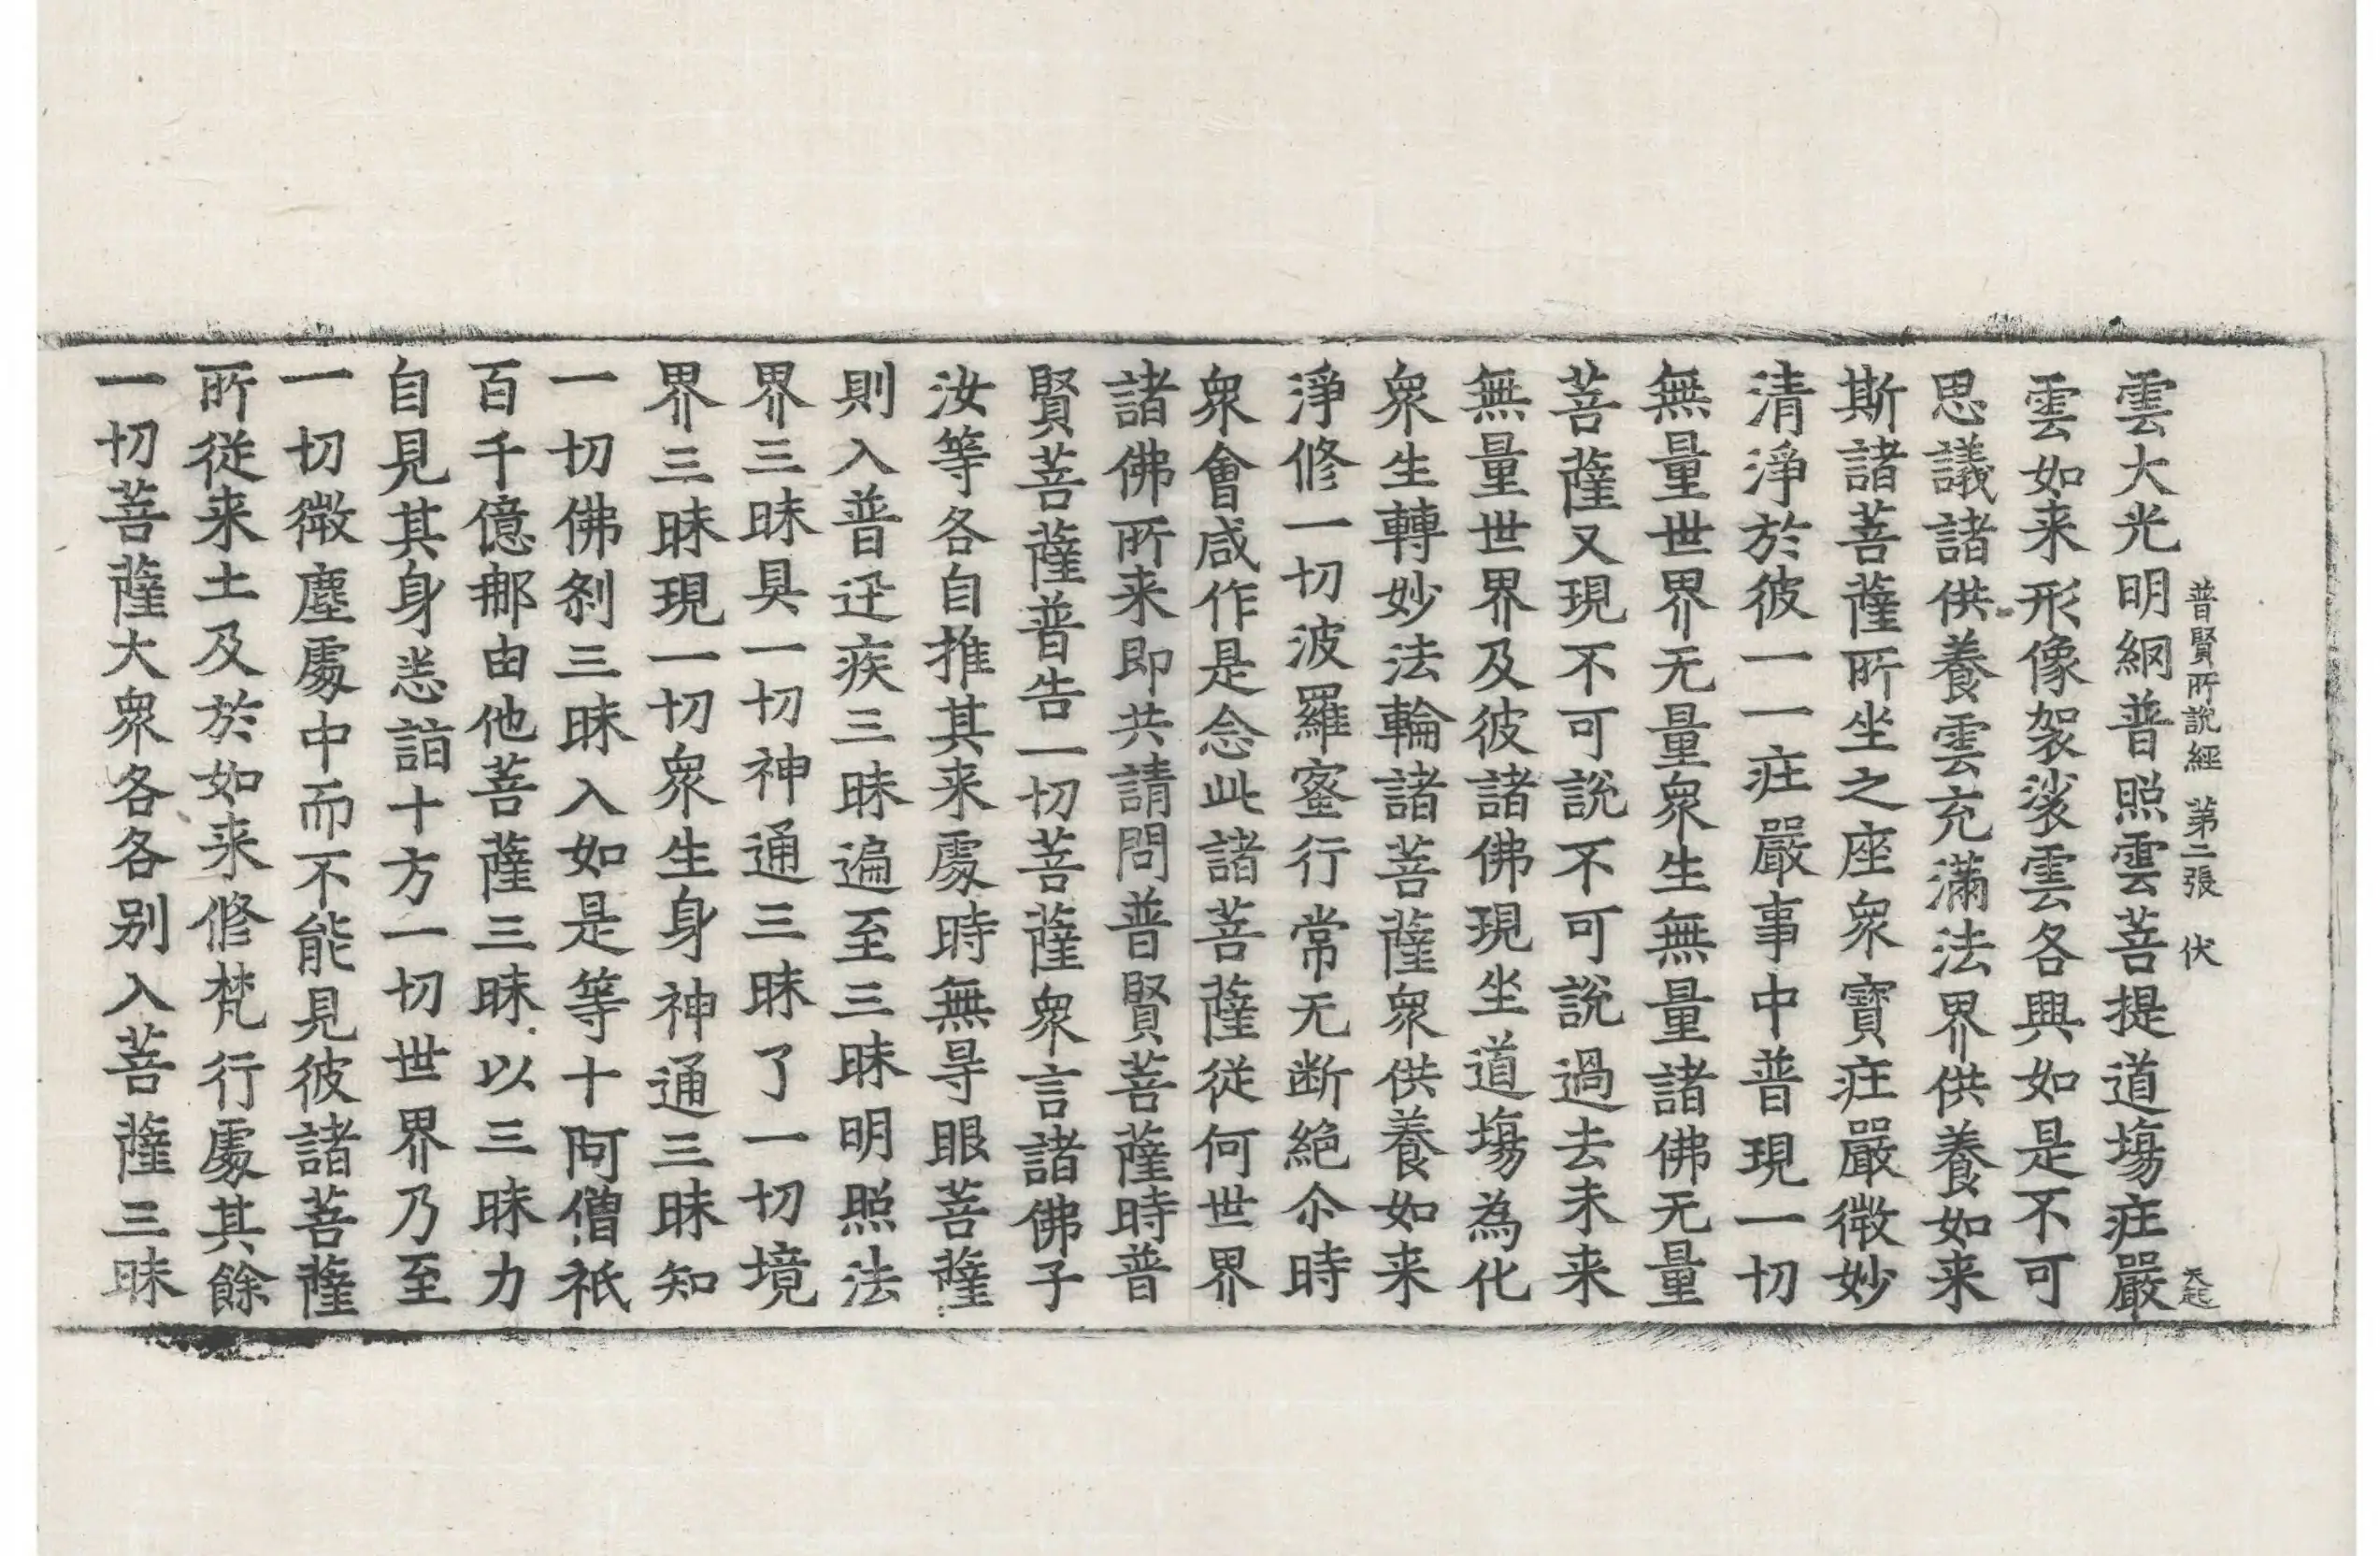 普賢所說經 第二張 伏 天起
雲大光明網普照雲菩提道場㽵嚴
雲如来形像袈裟雲各興如是不可
思議諸供養雲充滿法界供養如来
斯諸菩薩所坐之座衆寶㽵嚴微妙
清淨於彼一一㽵嚴事中普現一切
無量世界无量衆生無量諸佛无量
菩薩又現不可說不可說過去未来
無量世界及彼諸佛現坐道場為化
衆生轉妙法輪諸菩薩衆供養如来
淨修一切波羅蜜行常无断絶尒時
衆會咸作是念此諸菩薩從何世界
諸佛所来即共請問普賢菩薩時普
賢菩薩普告一切菩薩衆言諸佛子
汝等各自推其来處時無㝵眼菩薩
則入普迅疾三昧遍至三昧明照法
界三昧具一切神通三昧了一切境
界三昧現一切衆生身神通三昧知
一切佛剎三昧入如是等十阿僧祇
百千億那由他菩薩三昧以三昧力
自見其身悉詣十方一切世界乃至
一切微塵處中而不能見彼諸菩薩
所従来土及於如来修梵行處其餘
一切菩薩大衆各各别入菩薩三昧